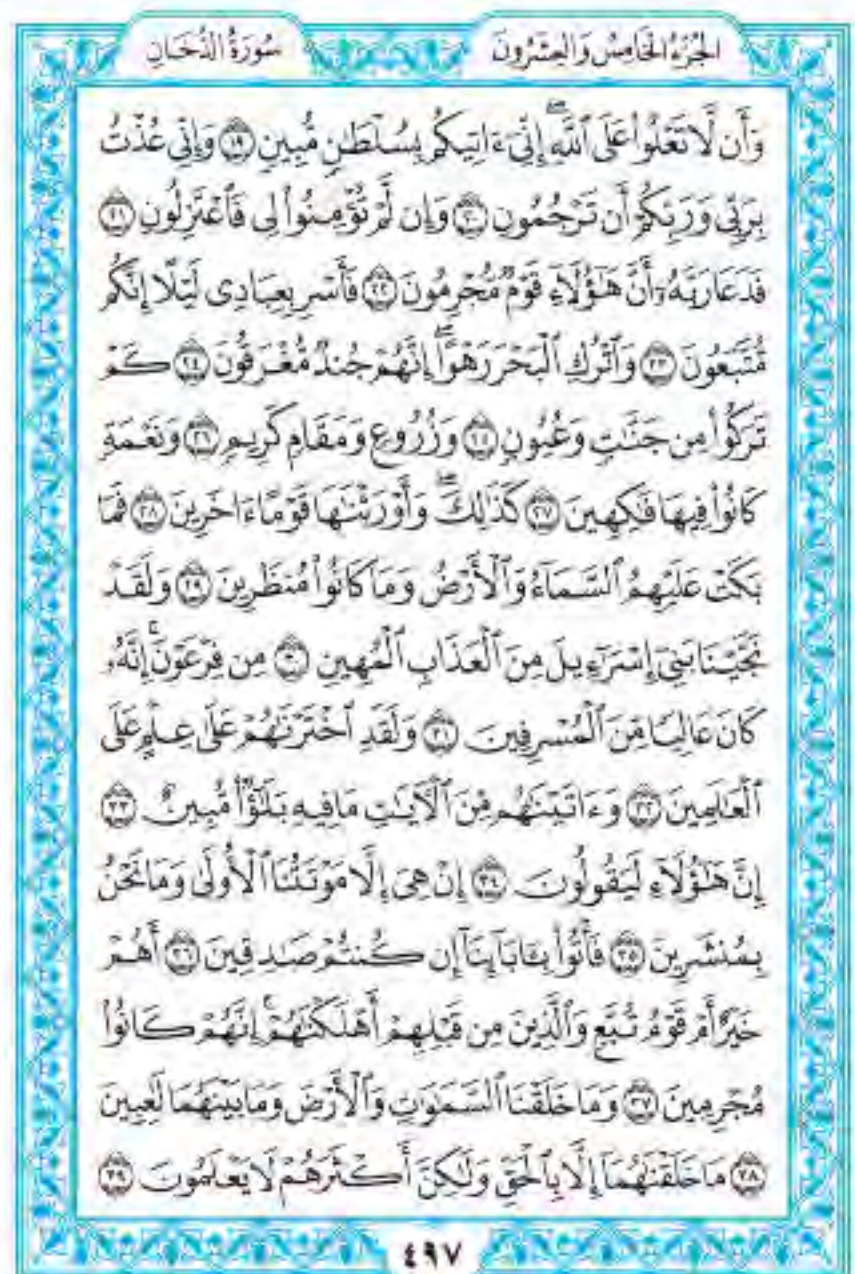 الجُزْءُ الخَامِسُ وَالعِشْرُونَ
سُورَةُ الدُّخَانِ
وَأَن لَّا تَعْلُوا۟ عَلَى ٱللَّهِ ۖ إِنِّىٓ ءَاتِيكُم بِسُلْطَٰنٍ مُّبِينٍ ١٩ وَإِنِّى عُذْتُ
بِرَبِّى وَرَبِّكُمْ أَن تَرْجُمُونِ ٢٠ وَإِن لَّمْ تُؤْمِنُوا۟ لِى فَٱعْتَزِلُونِ ٢١
فَدَعَا رَبَّهُۥٓ أَنَّ هَٰٓؤُلَآءِ قَوْمٌ مُّجْرِمُونَ ٢٢ فَأَسْرِ بِعِبَادِى لَيْلًا إِنَّكُم
مُّتَّبَعُونَ ٢٣ وَٱتْرُكِ ٱلْبَحْرَ رَهْوًا ۖ إِنَّهُمْ جُندٌ مُّغْرَقُونَ ٢٤ كَمْ
تَرَكُوا۟ مِن جَنَّٰتٍ وَعُيُونٍ ٢٥ وَزُرُوعٍ وَمَقَامٍ كَرِيمٍ ٢٦ وَنَعْمَةٍ
كَانُوا۟ فِيهَا فَٰكِهِينَ ٢٧ كَذَٰلِكَ ۖ وَأَوْرَثْنَٰهَا قَوْمًا ءَاخَرِينَ ٢٨ فَمَا
بَكَتْ عَلَيْهِمُ ٱلسَّمَآءُ وَٱلْأَرْضُ وَمَا كَانُوا۟ مُنظَرِينَ ٢٩ وَلَقَدْ
نَجَّيْنَا بَنِىٓ إِسْرَٰٓءِيلَ مِنَ ٱلْعَذَابِ ٱلْمُهِينِ ٣٠ مِن فِرْعَوْنَ ۚ إِنَّهُۥ
كَانَ عَالِيًا مِّنَ ٱلْمُسْرِفِينَ ٣١ وَلَقَدِ ٱخْتَرْنَٰهُمْ عَلَىٰ عِلْمٍ عَلَى
ٱلْعَٰلَمِينَ ٣٢ وَءَاتَيْنَٰهُم مِّنَ ٱلْءَايَٰتِ مَا فِيهِ بَلَٰٓؤٌا۟ مُّبِينٌ ٣٣
إِنَّ هَٰٓؤُلَآءِ لَيَقُولُونَ ٣٤ إِنْ هِىَ إِلَّا مَوْتَتُنَا ٱلْأُولَىٰ وَمَا نَحْنُ
بِمُنشَرِينَ ٣٥ فَأْتُوا۟ بِـَٔابَآئِنَآ إِن كُنتُمْ صَٰدِقِينَ ٣٦ أَهُمْ
خَيْرٌ أَمْ قَوْمُ تُبَّعٍ وَٱلَّذِينَ مِن قَبْلِهِمْ ۚ أَهْلَكْنَٰهُمْ ۖ إِنَّهُمْ كَانُوا۟
مُجْرِمِينَ ٣٧ وَمَا خَلَقْنَا ٱلسَّمَٰوَٰتِ وَٱلْأَرْضَ وَمَا بَيْنَهُمَا لَٰعِبِينَ
٣٨ مَا خَلَقْنَٰهُمَآ إِلَّا بِٱلْحَقِّ وَلَٰكِنَّ أَكْثَرَهُمْ لَا يَعْلَمُونَ ٣٩
٤٩٧